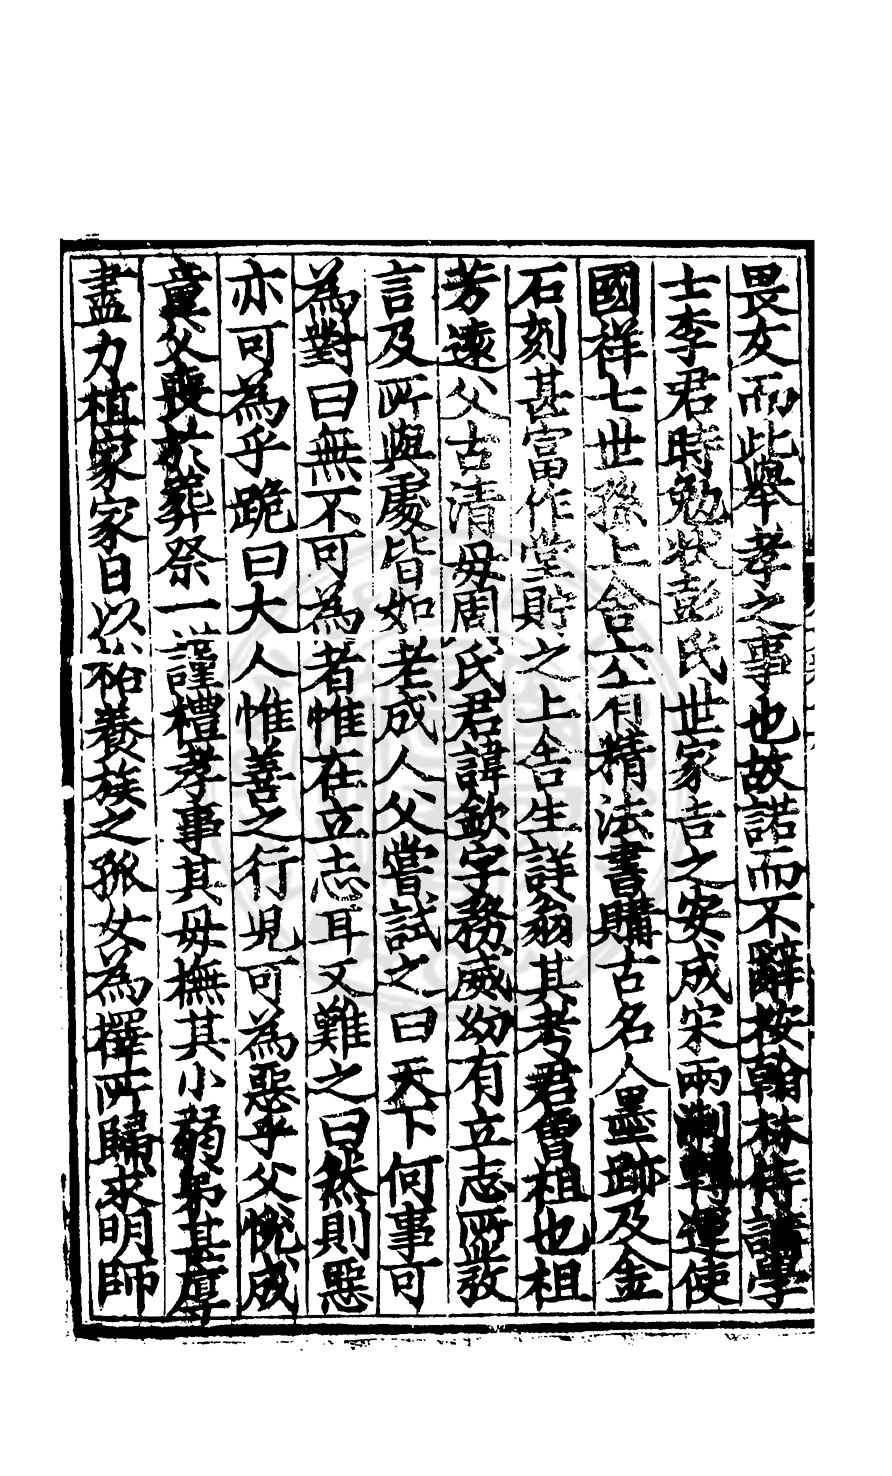 畏友而此舉孝之事也故諾而不辭按翰林侍講學
士李君時勉狀彭氏世家吉之安成宋兩淛轉運使
國祥七世孫上舍士有精法書購古名人墨跡及金
石刻甚富作堂貯之上舍生詳翁其考君曾祖也祖
芳遠父古清毋周氏君諱欽字務威幼有立志逥敎
言及所與處皆如老成人父嘗試之曰天下何事可
為對曰無不可為者惟在立志耳又難之曰然則惡
亦可為乎跪曰大人惟善之行児可為惡乎父恱成
童父喪於葬祭一謹禮孝事其毋撫其小弱弟甚厚
盡力植家家日以裕養族之孤女為擇所歸求明師